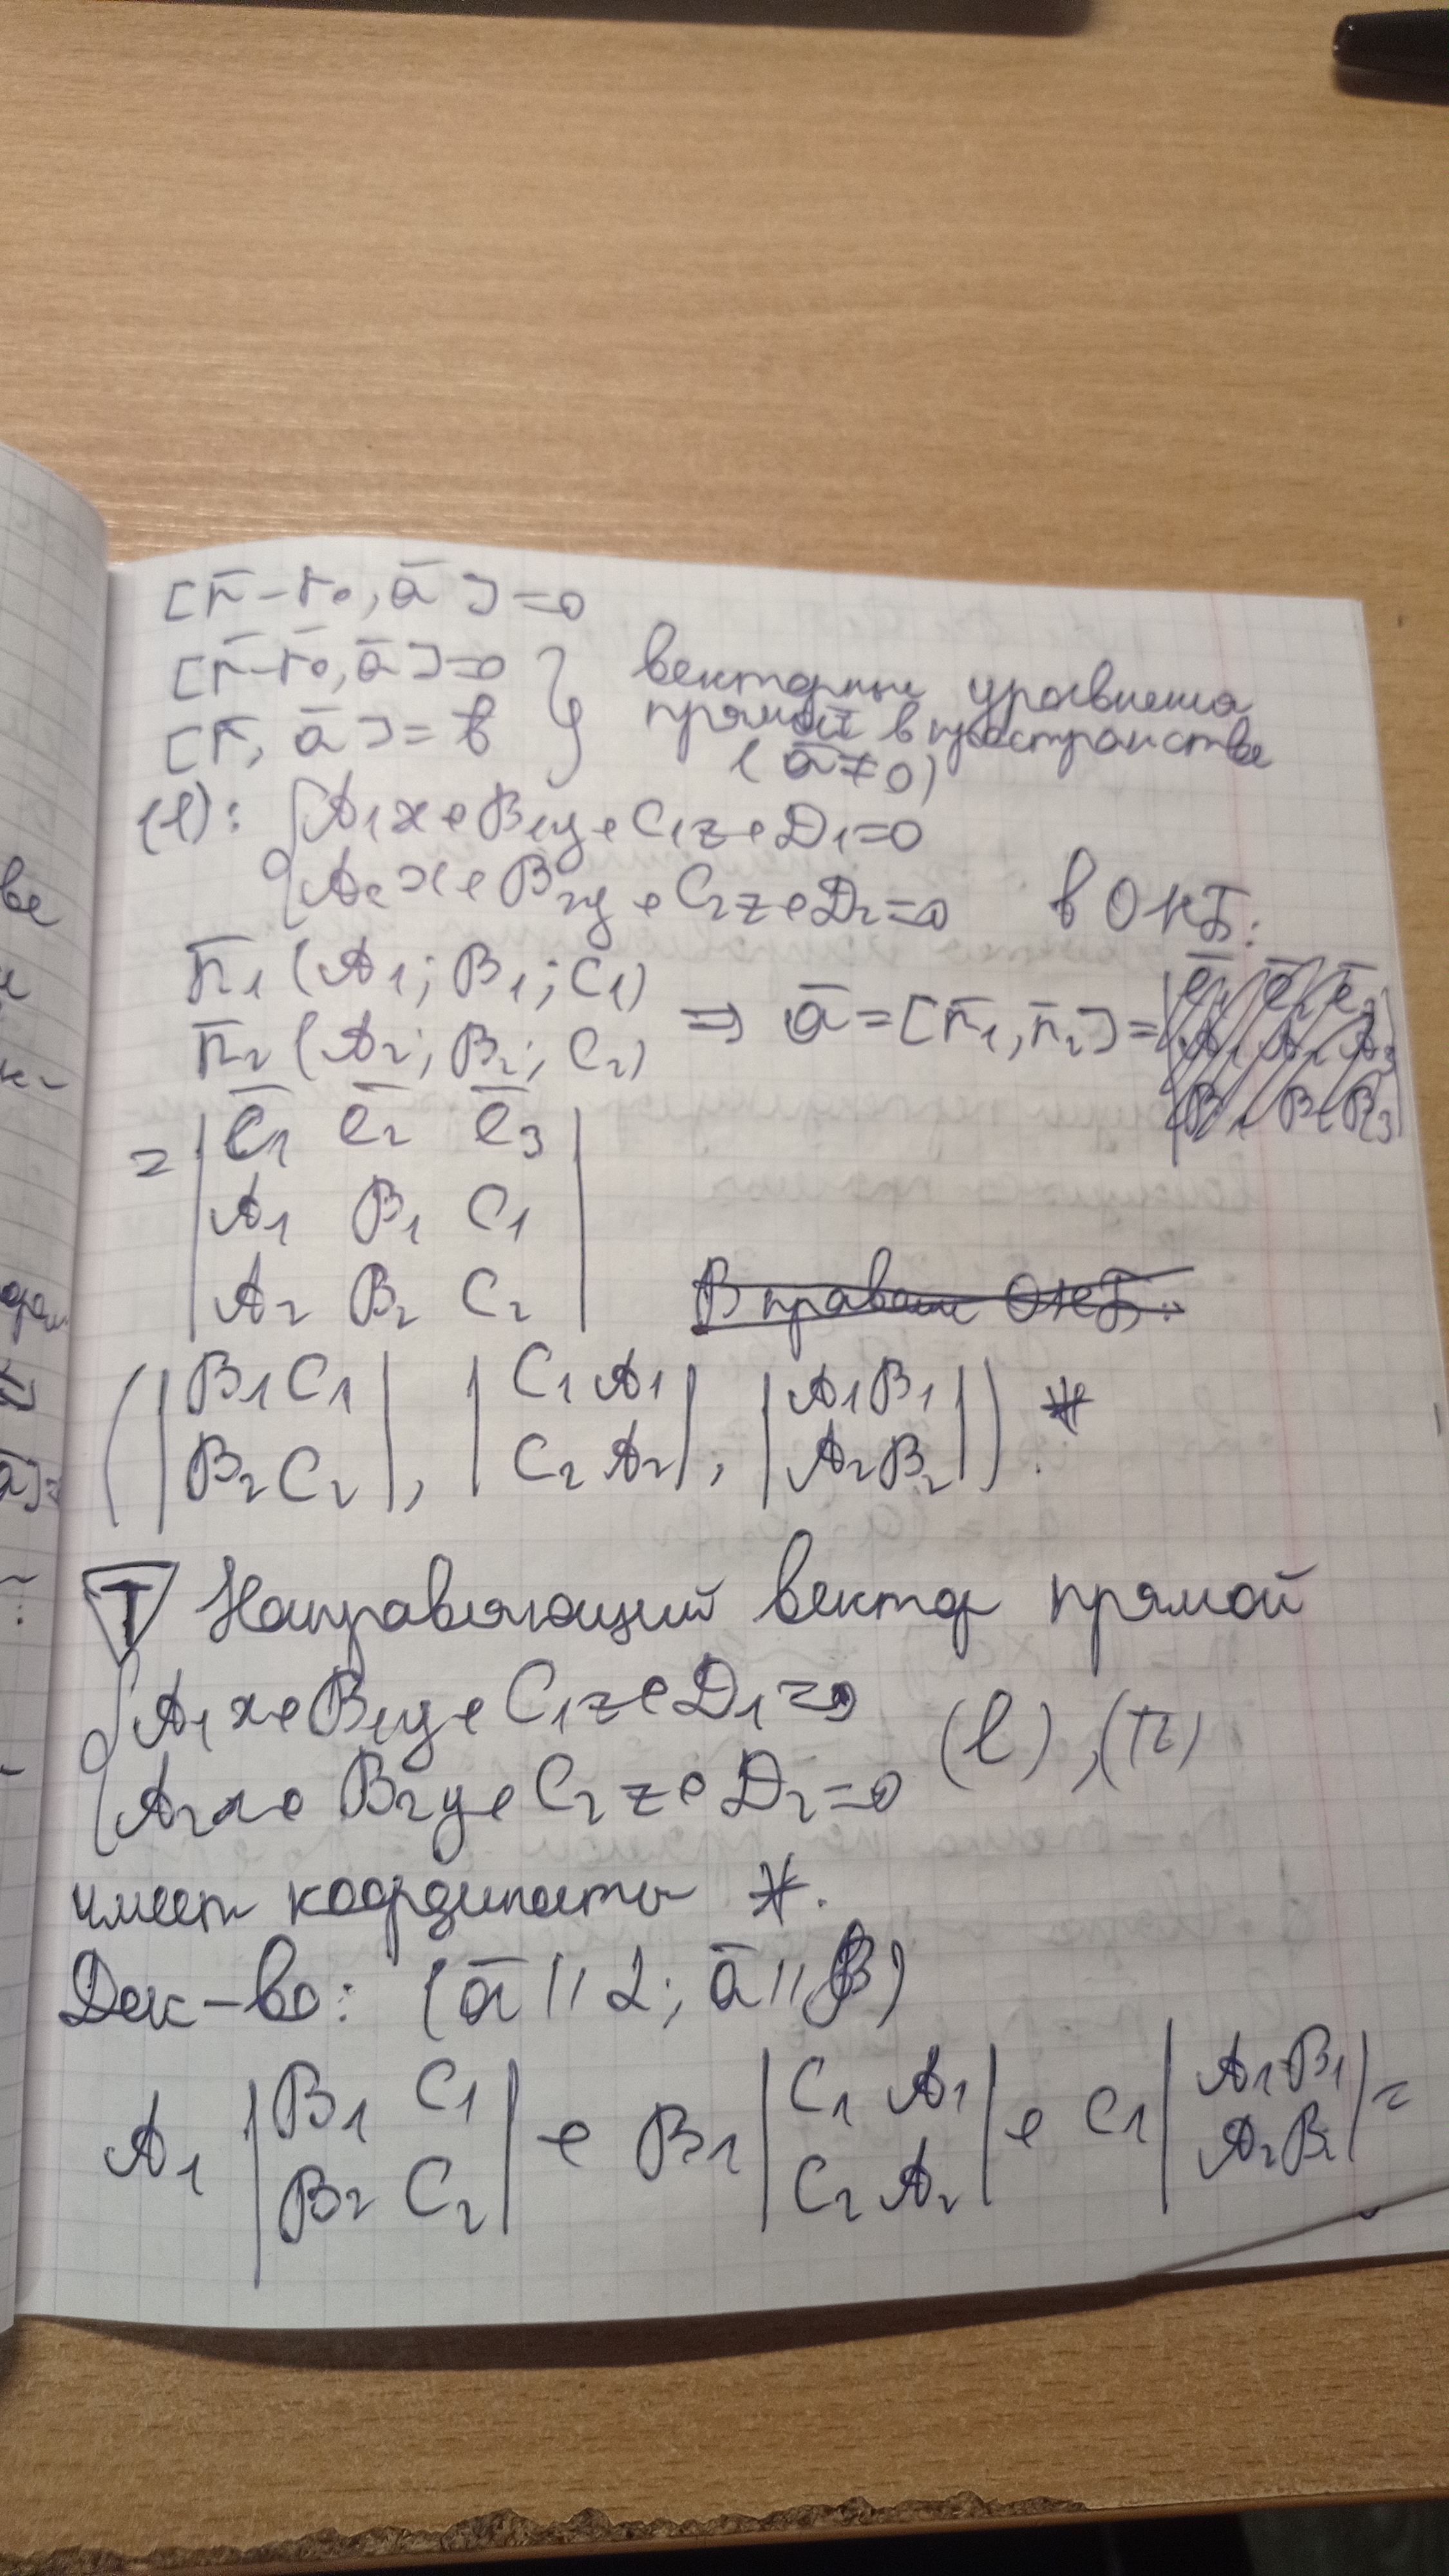 [r̄ - r₀, ā] = 0
[r̄ - r̄₀, ā] = 0
[r̄, ā] = b̄
векторные уравнения
прямой в пространстве
(ā ≠ 0)
(l): { A₁x + B₁y + C₁z + D₁ = 0
A₂x + B₂y + C₂z + D₂ = 0 в ОНБ:
n̄₁ (A₁; B₁; C₁)
n̄₂ (A₂; B₂; C₂) ⇒ ā = [n̄₁, n̄₂] =
= | ē₁ ē₂ ē₃ |
| A₁ B₁ C₁ |
| A₂ B₂ C₂ |
В правом ОНБ:
( | B₁ C₁ | , | C₁ A₁ | , | A₁ B₁ | ) *
| B₂ C₂ | | C₂ A₂ | | A₂ B₂ |
T Направляющий вектор прямой
{ A₁x + B₁y + C₁z + D₁ = 0
A₂x + B₂y + C₂z + D₂ = 0 (l), (π)
имеет координаты *.
Док-во: (ā || α; ā || β)
A₁ | B₁ C₁ | + B₁ | C₁ A₁ | + C₁ | A₁ B₁ | =
| B₂ C₂ | | C₂ A₂ | | A₂ B₂ |